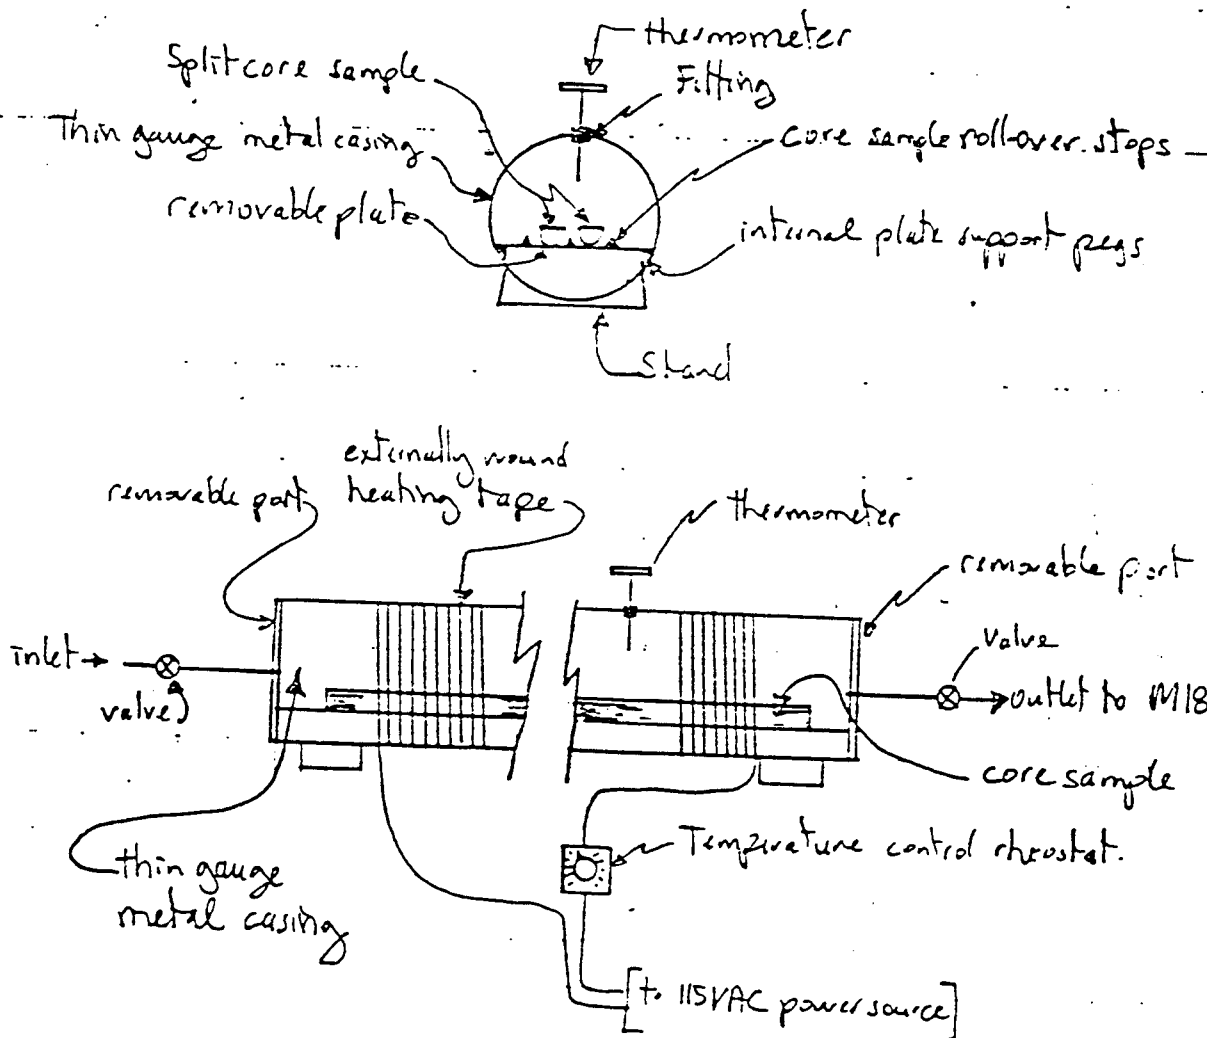 thermometer
Split core sample
Fitting
Thin gauge metal casing
core sample roll-over stops
removable plate
internal plate support pegs
Stand
externally wound
heating tape
removable port
thermometer
removable port
inlet
valve
valve
outlet to M18
core sample
Temperature control rheostat.
thin gauge
metal casing
[to 115VAC power source]